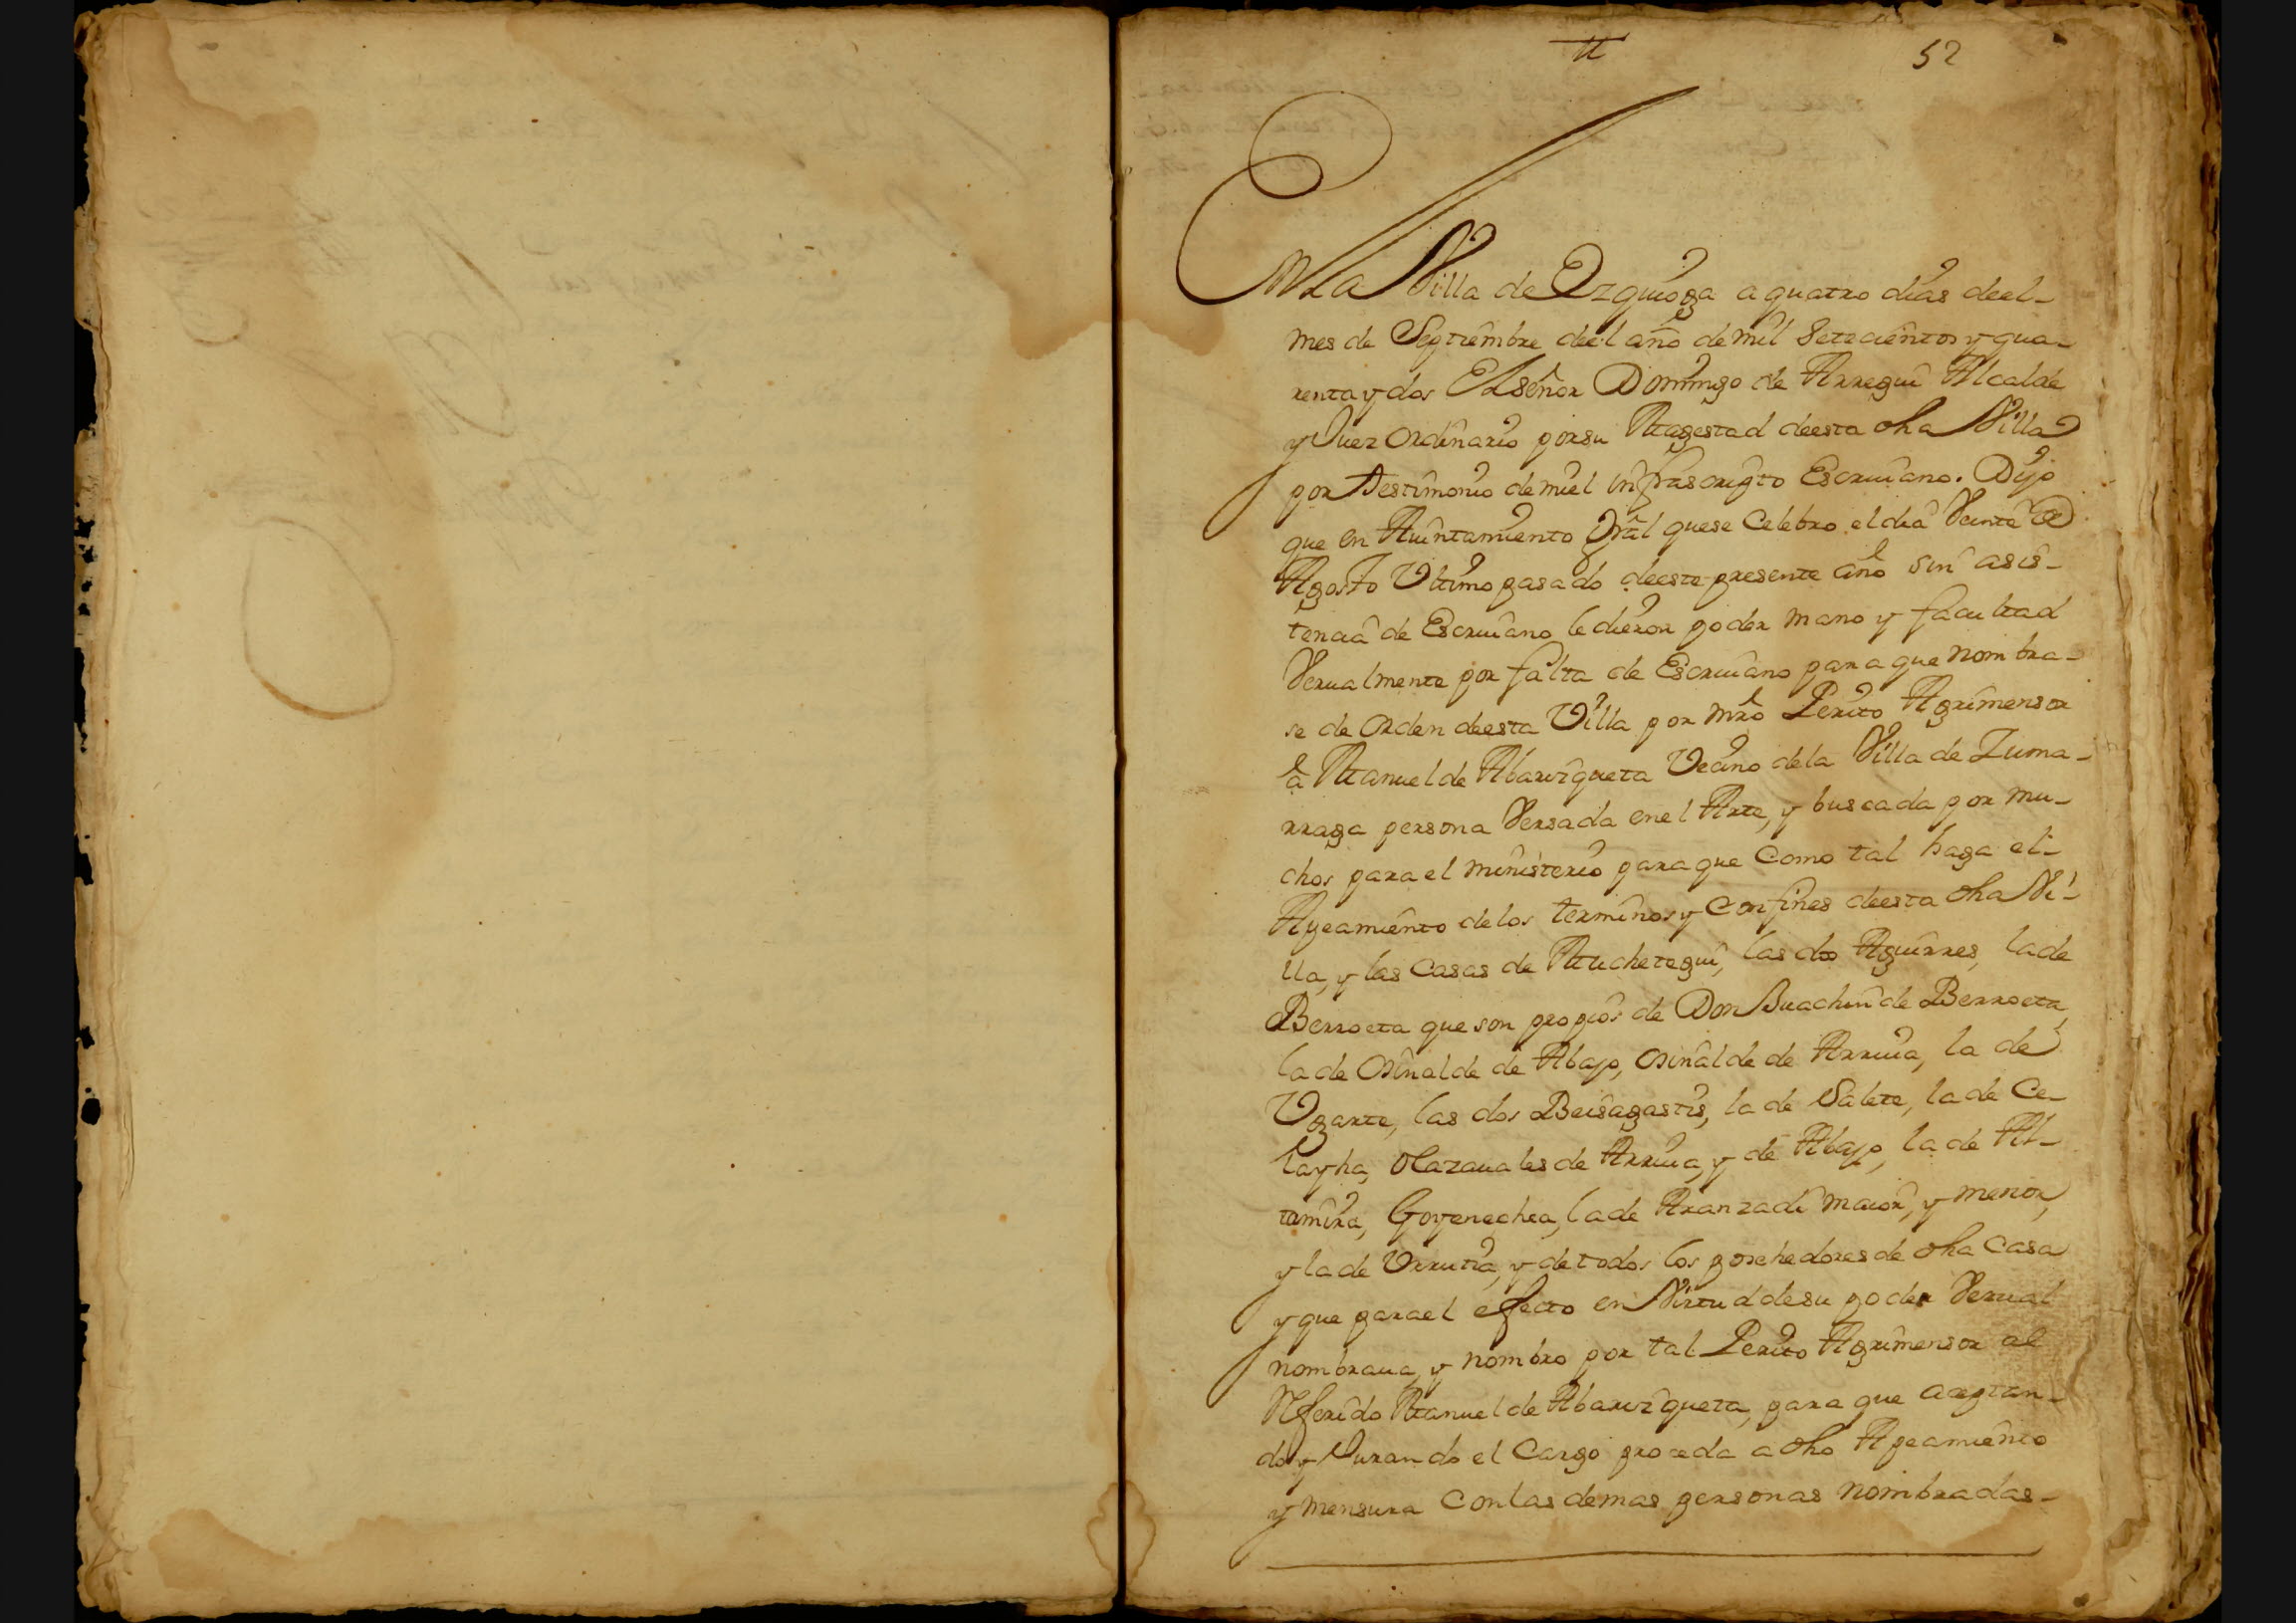 52
En La Villa de Ezquioga a quatro dias deel
mes de Septiembre deel año de mil Setecientos y qua-
renta y dos El señor Domingo de Arregui Alcalde
y Juez ordinario por su Magestad deesta dha Villa
por testimonio de mi el infrascripto Escriuano. Dijo
que en Auintamiento Gral que se Celebro el dia Veinte de
Agosto Vltimo pasado deeste presente año sin asis-
tencia de Escriuano le dieron poder mano y facultad
Verualmente por falta de Escriuano para que nombra-
se de orden deesta Villa por mro Perito Agrimensor
a Manuel de Abarizqueta Vecino de la Villa de Zuma-
rraga persona Versada en el Arte, y buscada por mu-
chos para el ministerio para que Como tal haga el
Apeamiento de los terminos y Confines deesta dha Vi-
lla, y las Casas de Muchetegui, las dos Aguirres, la de
Berroeta que son propios de Don Juachin de Berroeta,
la de Osinalde de Abajo, Osinalde de Arriua, la de
Vgarte, las dos Beisagastis, la de Salete, la de Ce-
layha, Olazauales de Arriua, y de Abajo, la de Al-
tamira, Goyenechea, la de Aranzadi maior, y menor,
y la de Vrrutia, y de todos los posehedores de dha Casa
y que para el efecto en Virtud de su poder Verual
nombraua, y nombro por tal Perito Agrimensor al
Referido Manuel de Abarizqueta, para que aceptan-
do y Jurando el Cargo proceda a dho Apeamiento
y mensura Con las demas personas nombradas